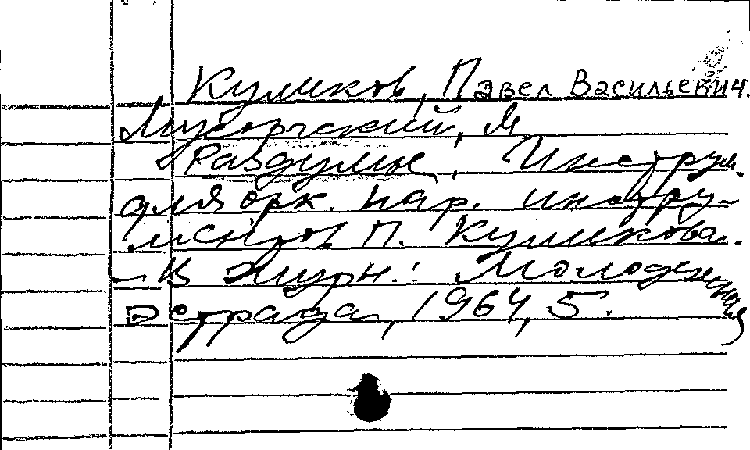 Куликов, Павел Васильевич.
Мусоргский, М
Раздумье. Инструм.
для орк. нар. инстру-
ментов П. Куликова.
- В журн.: Молодежная
эстрада, 1964, 5.